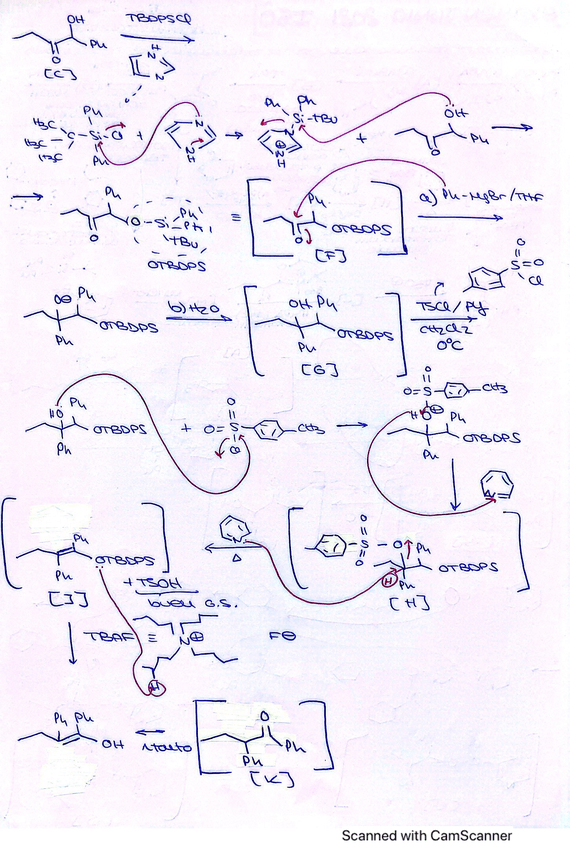 OH TBDPSCl
Ph
O
[C]
H
N
N
Ph
H3C
H3C C Si Cl + N
H3C Ph NH
Ph Ph
Si tBu
N
⊕
NH
+ OH
Ph
O
Ph
O Si Ph
Ph
tBu
O
OTBDPS
≡ Ph
OTBDPS
O
[F]
a) Ph-MgBr/THF
O⊖ Ph
OTBDPS
Ph
b) H2O
OH Ph
OTBDPS
Ph
[G]
TSCl/Py
CH2Cl2
0°C
O
S=O
Cl
HO Ph
OTBDPS
Ph
+ O
O=S CH3
Cl
O
O=S CH3
H O ⊕ Ph
OTBDPS
Ph
N
Ph
OTBDPS
Ph
[J]
+ TSOH
buen G.S.
N
Δ
O
S O Ph
O
H OTBDPS
Ph
[H]
TBAF ≡ N⊕ F⊖
H
Ph Ph
OH
O
Ph
Ph
[K]
Scanned with CamScanner